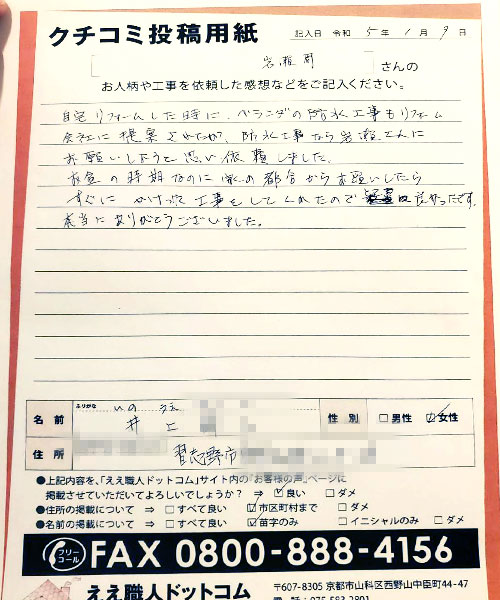 クチコミ投稿用紙
記入日 令和 5年 1月 9日
岩瀬 さんの
お人柄や工事を依頼した感想などをご記入ください。
自宅リフォームした時に、ベランダの防水工事もリフォーム
会社に提案されたが、防水工事なら岩瀬さんに
お願いしようと思い依頼しました。
お盆の時期なのに 家の都合からお願いしたら
すぐに かけつけ工事をしてくれたので 良かったです。
本当にありがとうございました。
ふりがな いの うえ
名前 井上 性別 □男性 ☑女性
住所 習志野市
●上記内容を、「ええ職人ドットコム」サイト内の「お客様の声」ページに
掲載させていただいてよろしいでしょうか? ⇒ ☑良い □ダメ
●住所の掲載について ⇒ □すべて良い ☑市区町村まで □ダメ
●名前の掲載について ⇒ □すべて良い ☑苗字のみ □イニシャルのみ □ダメ
フリーコール FAX 0800-888-4156
ええ職人ドットコム 〒607-8305 京都市山科区西野山中臣町44-47